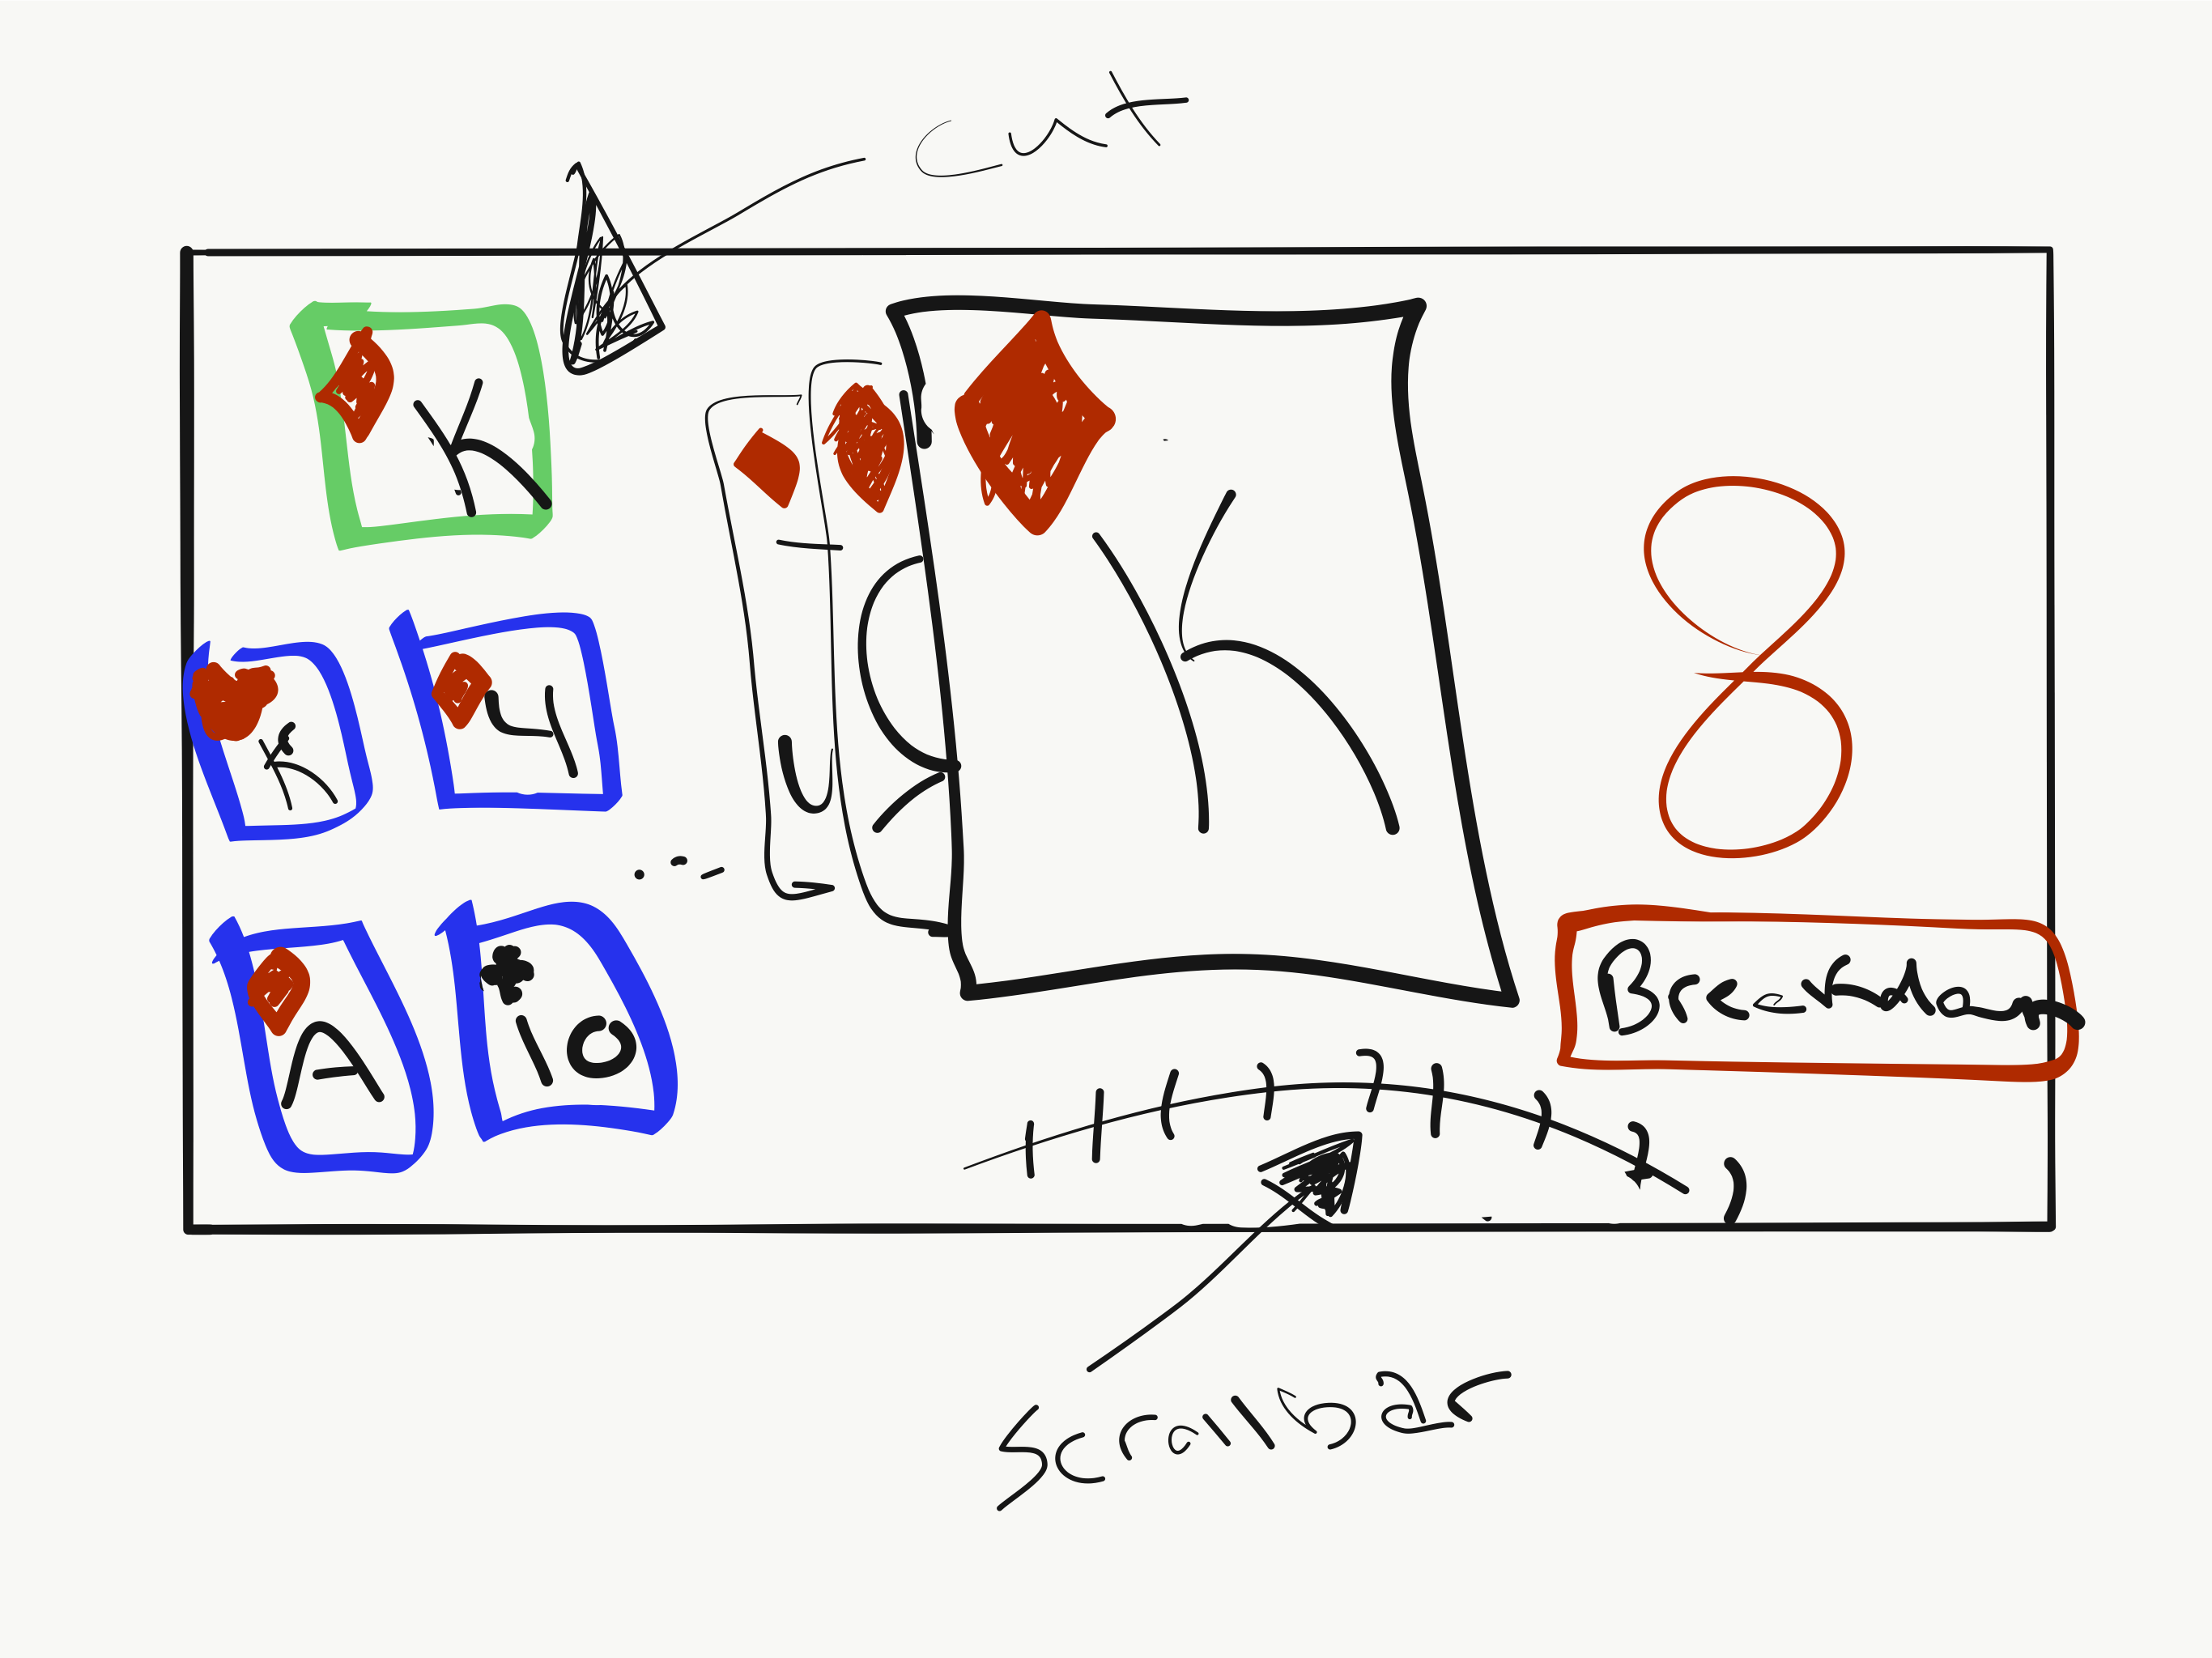 cut
K
K
4
A
10
J
Q
K
8
Breakdown
Scrollbar